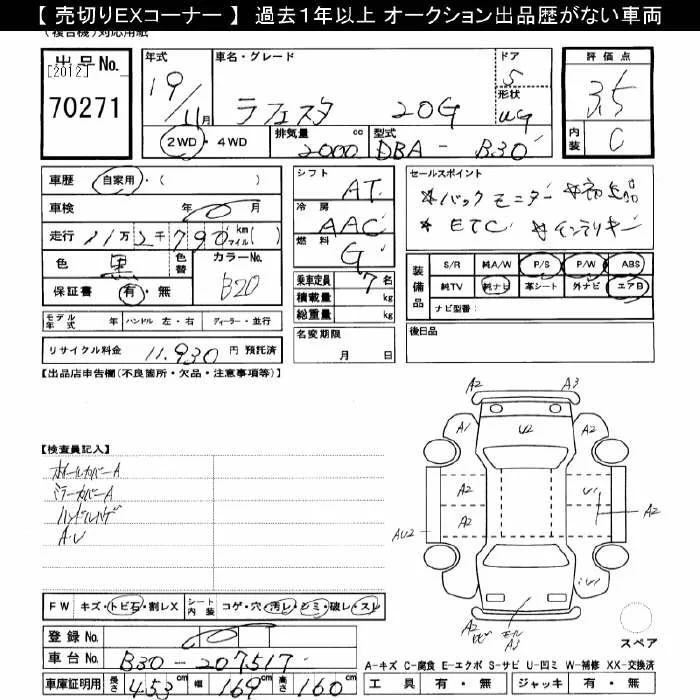 【 売切りEXコーナー 】 過去1年以上 オークション出品歴がない車両
(複合機)対応用紙
出品No.
[2012]
70271
年式
19/11月
車名・グレード
ラフェスタ 20G
ドア
5
形状
WG
評価点
3.5
内装
C
2WD・4WD
排気量 2000 cc
型式 DBA - B30
車歴 自家用・( )
車検 年 月
走行 11万2千790 km マイル( )
色 黒 色替
カラーNo. B20
保証書 有・無
シフト AT
冷房 AAC
燃料 G
乗車定員 7名
積載量 kg
総重量 kg
名変期限
月 日
セールスポイント
*バックモニター *
*ETC *インテリキー
装備品
S/R 純A/W P/S P/W ABS
純TV 純ナビ 革シート 外ナビ エアB
ナビ型番:
後日品
モデル年式 年 ハンドル 左・右 ディーラー・並行
リサイクル料金 11,930 円 預託済
【出品店申告欄(不良箇所・欠品・注意事項等)】
【検査員記入】
ホイールカバーA
ミラーカバーA
ハンドルハゲ
A.U
A2 A3
A1 U2 A2
A2 U1
A2 A2
AU2
U1
A2
A3
スペア
FW キズ・トビ石・割レX シート内装 コゲ・穴・汚レ・シミ・破レ・スレ
登録No.
車台No. B30-207517
車庫証明用 長さ 453cm 幅 169cm 高さ 160cm
A-キズ C-腐食 E-エクボ S-サビ U-凹ミ W-補修 XX-交換済
工具 有・無 ジャッキ 有・無